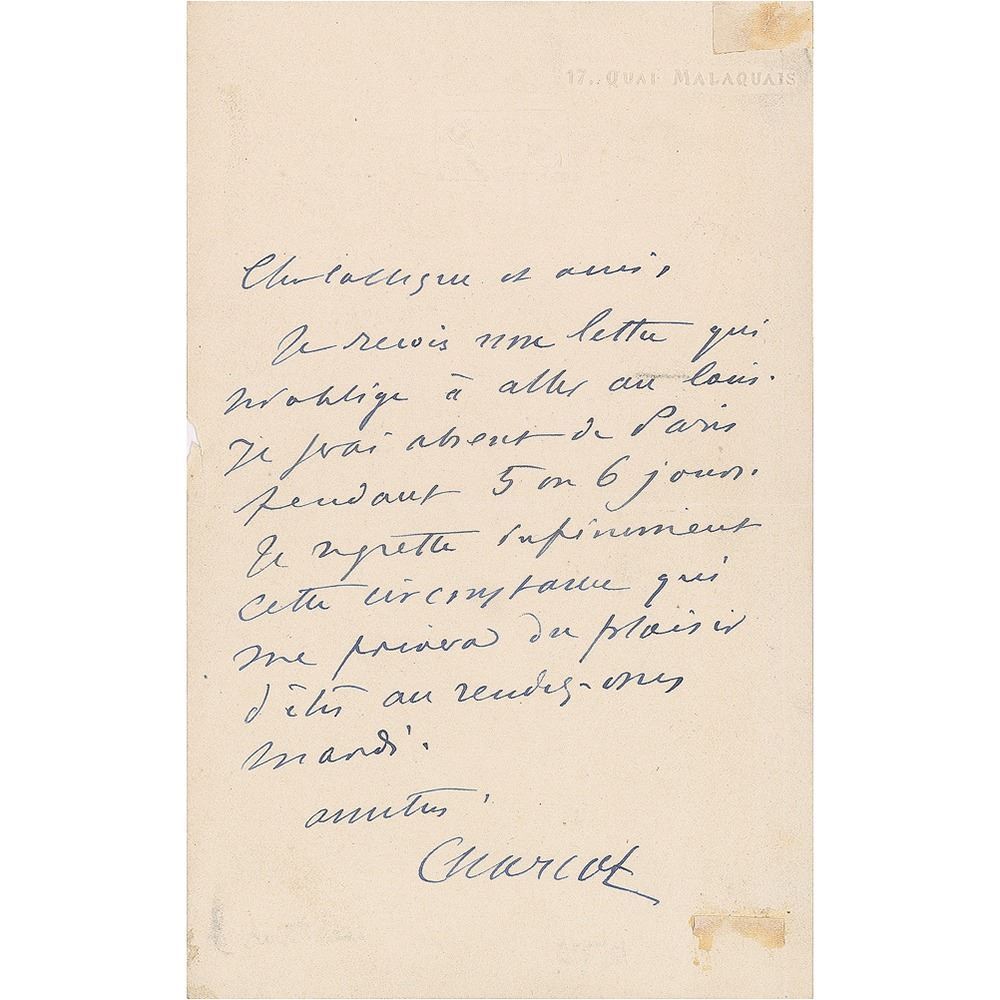 17, QUAI MALAQUAIS
Cher collègue et ami,
Je reçois une lettre qui
m'oblige à aller au loin.
Je serai absent de Paris
pendant 5 ou 6 jours.
Je regrette infiniment
cette circonstance qui
me privera du plaisir
d'être au rendez-vous
mardi.
amitiés
Charcot